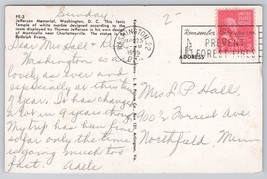 PE-3
Sunday
Jefferson Memorial, Washington, D. C. This Ionic
Temple of white marble designed according to the
taste displayed by Thomas Jefferson in his own design
of Monticello near Charlottesville. The statue is by
Rudulph Evans.
Dear Mrs Hall &
Washington is as
lovely as ever and
especially at this time
of year. It has changed
a lot in 9 years though.
My trip has been fun
so far only the time
is going much too
fast. Adele
WASHINGTON
D.C.
Remember
PREVENT
FOREST FIRES
ADDRESS
Mrs L P Hall
900 Forrest Ave
Northfield Minn